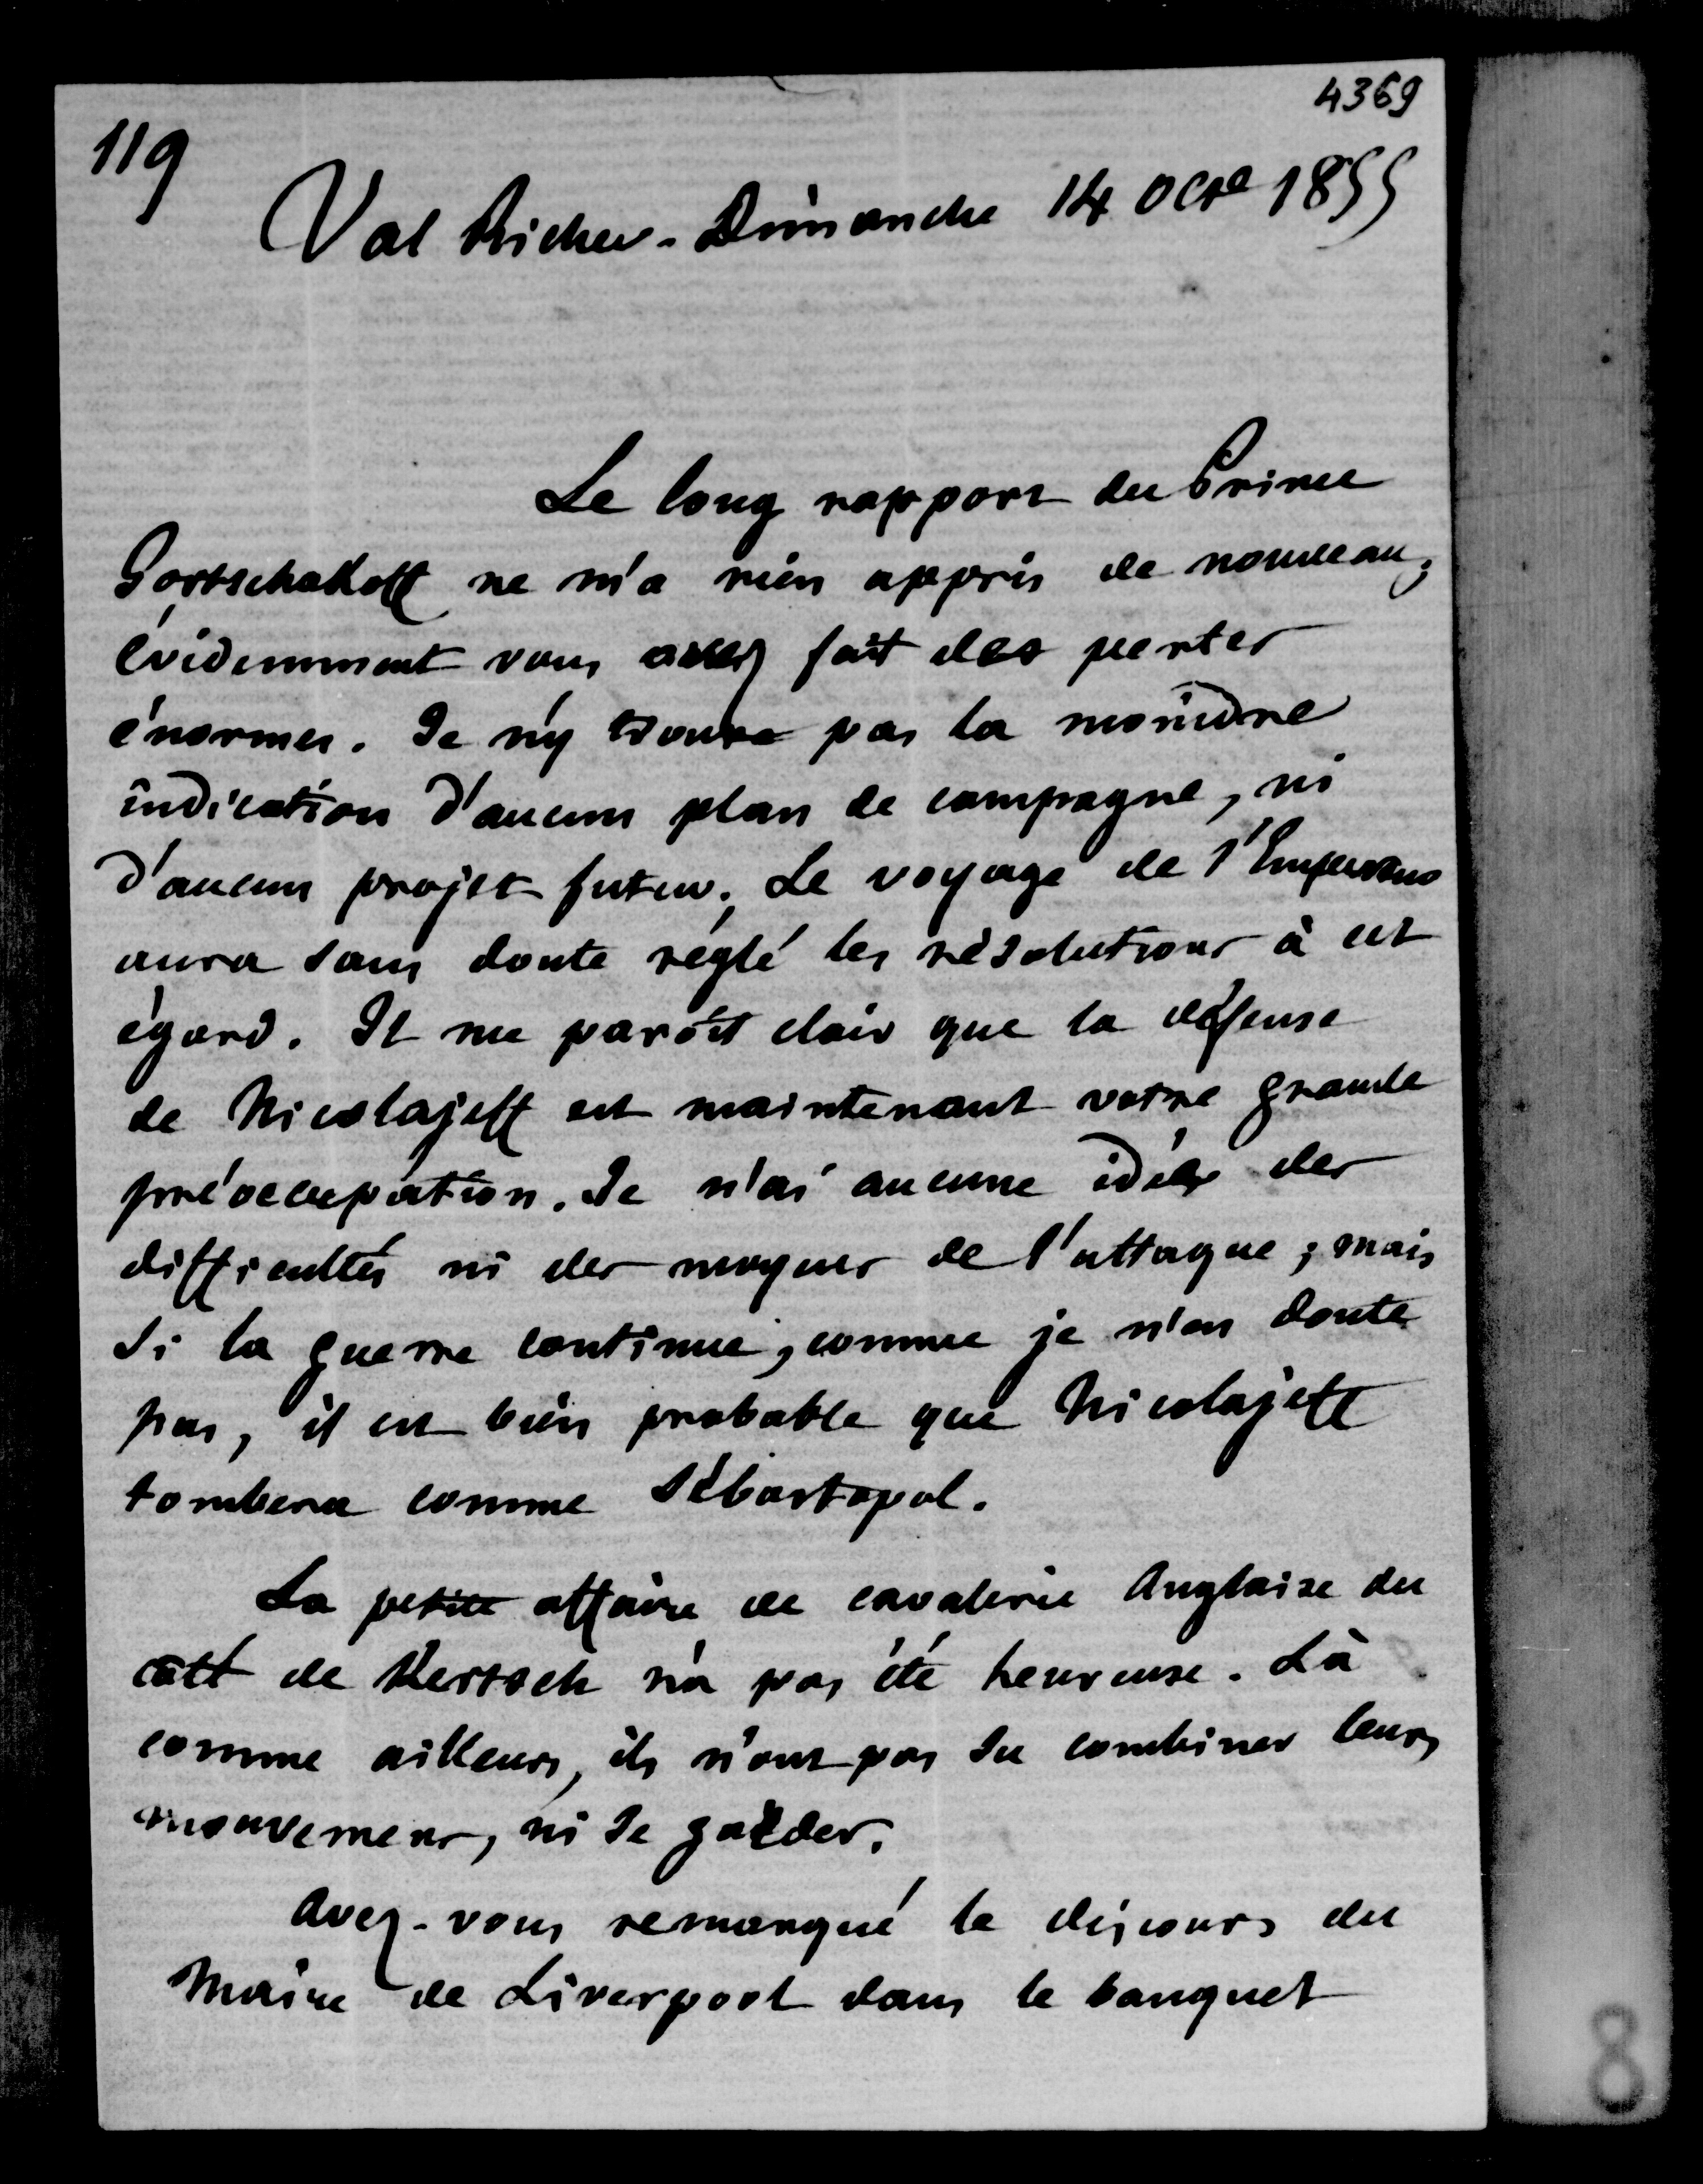 4369
119
Val Richer - Dimanche 14 Octe 1855
Le long rapport du Prince
Gortschakoff ne m'a rien appris de nouveau;
évidemment vous avez fait des pertes
énormes. Je n'y trouve pas la moindre
indication d'aucun plan de campagne, ni
d'aucun projet futur. Le voyage de l'Empereur
aura sans doute réglé les résolutions à cet
égard. Il me paroît clair que la défense
de Nicolajeff est maintenant votre grande
préoccupation. Je n'ai aucune idée des
difficultés ni des moyens de l'attaque; mais
si la guerre continue, comme je n'en doute
pas, il est bien probable que Nicolajeff
tombera comme Sébastopol.
La petite affaire de cavalerie Anglaise du
côté de Kertsch n'a pas été heureuse. Là
comme ailleurs, ils n'ont pas su combiner leurs
mouvemens, ni se garder.
Avez-vous remarqué le discours du
Maire de Liverpool dans le banquet
8